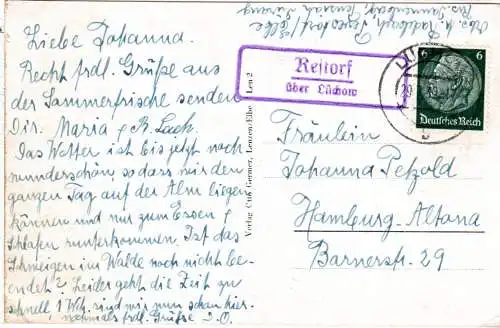 Liebe Johanna.
Recht frdl. Grüße aus
der Sommerfrische senden
Dir. Maria &
Das Wetter ist bis jetzt noch
wunderschön, so dass wir den
ganzen Tag auf der Alm liegen
können und nur zum Essen &
Schlafen runterkommen. Ist das
Schweigen im Walde noch nicht be-
endet? Leider geht die Zeit zu
schnell, 1 Wch. sind wir nun schon hier.
nochmals frdl. Grüße D.O.
Verlag Germer, Lenzen/Elbe Len 2
Restorf
über Lüchow
6 6
Deutsches Reich
Fräulein
Johanna Petzold
Hamburg-Altona
Barnerstr. 29